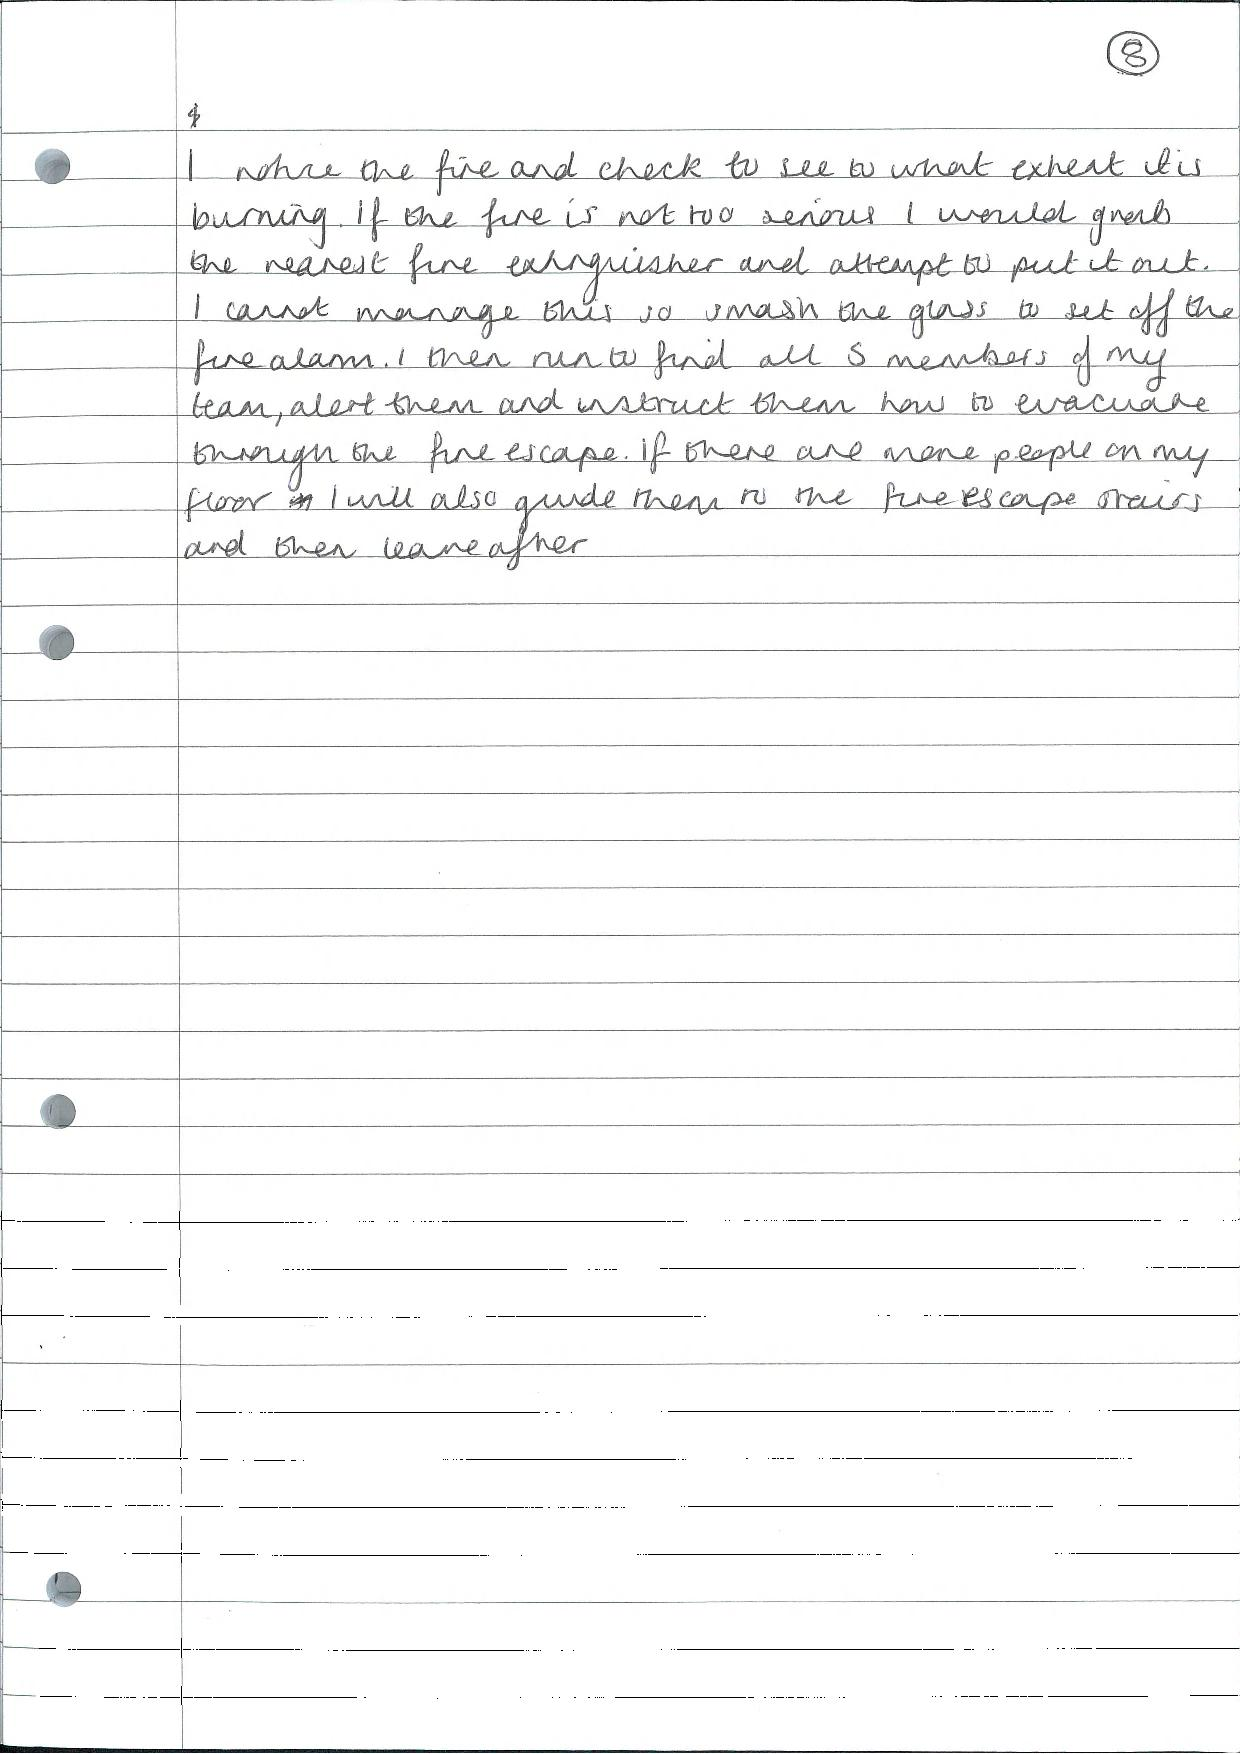 8
I notice the fire and check to see to what extent it is
burning. If the fire is not too serious I would grab
the nearest fire extinguisher and attempt to put it out.
I cannot manage this so smash the glass to set off the
fire alarm. I then run to find all 5 members of my
team, alert them and instruct them how to evacuate
through the fire escape. If there are more people on my
floor I will also guide them to the fire escape stairs
and then leave after